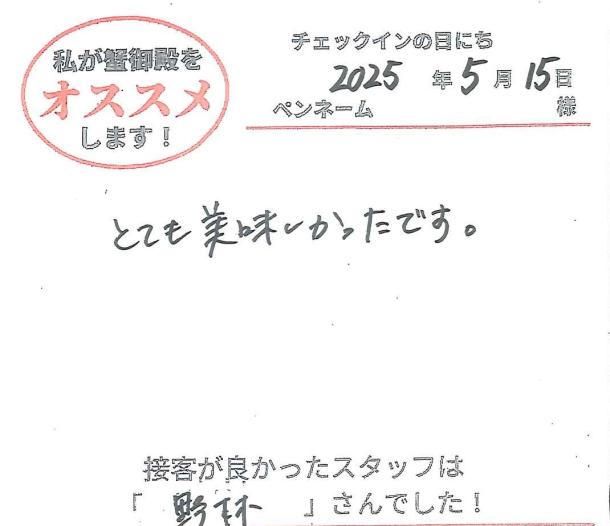 私が蟹御殿を
オススメ
します!
チェックインの日にち
2025 年 5 月 15 日
ペンネーム 様
とても美味しかったです。
接客が良かったスタッフは
「 野林 」さんでした!